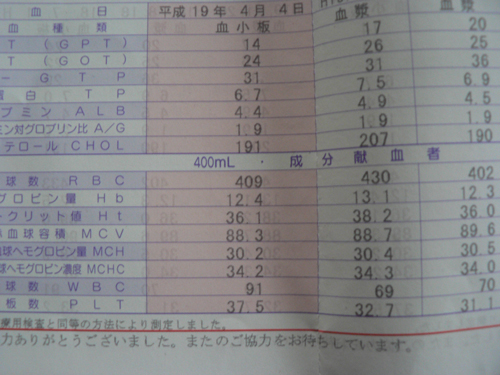 血 日 平成19年 4月 4日
血 種類 血小板 血漿 血漿
T (GPT) 14 17 20
T (GOT) 24 26 25
ーGTP 31 31 36
蛋白 TP 6.7 7.5 6.9
ブミン ALB 4.4 4.9 4.5
ミン対グロブリン比 A/G 1.9 1.9 1.9
テロール CHOL 191 207 190
400mL ・ 成分献血者
球数 RBC 409 430 402
グロビン量 Hb 12.4 13.1 12.3
クリット値 Ht 36.1 38.2 36.0
血球容積 MCV 88.3 88.7 89.6
球ヘモグロビン量 MCH 30.2 30.4 30.5
球ヘモグロビン濃度 MCHC 34.2 34.3 34.0
球数 WBC 91 69 70
板数 PLT 37.5 32.7 31.1
療用検査と同等の方法により測定しました。
力ありがとうございました。またのご協力をお待ちしています。